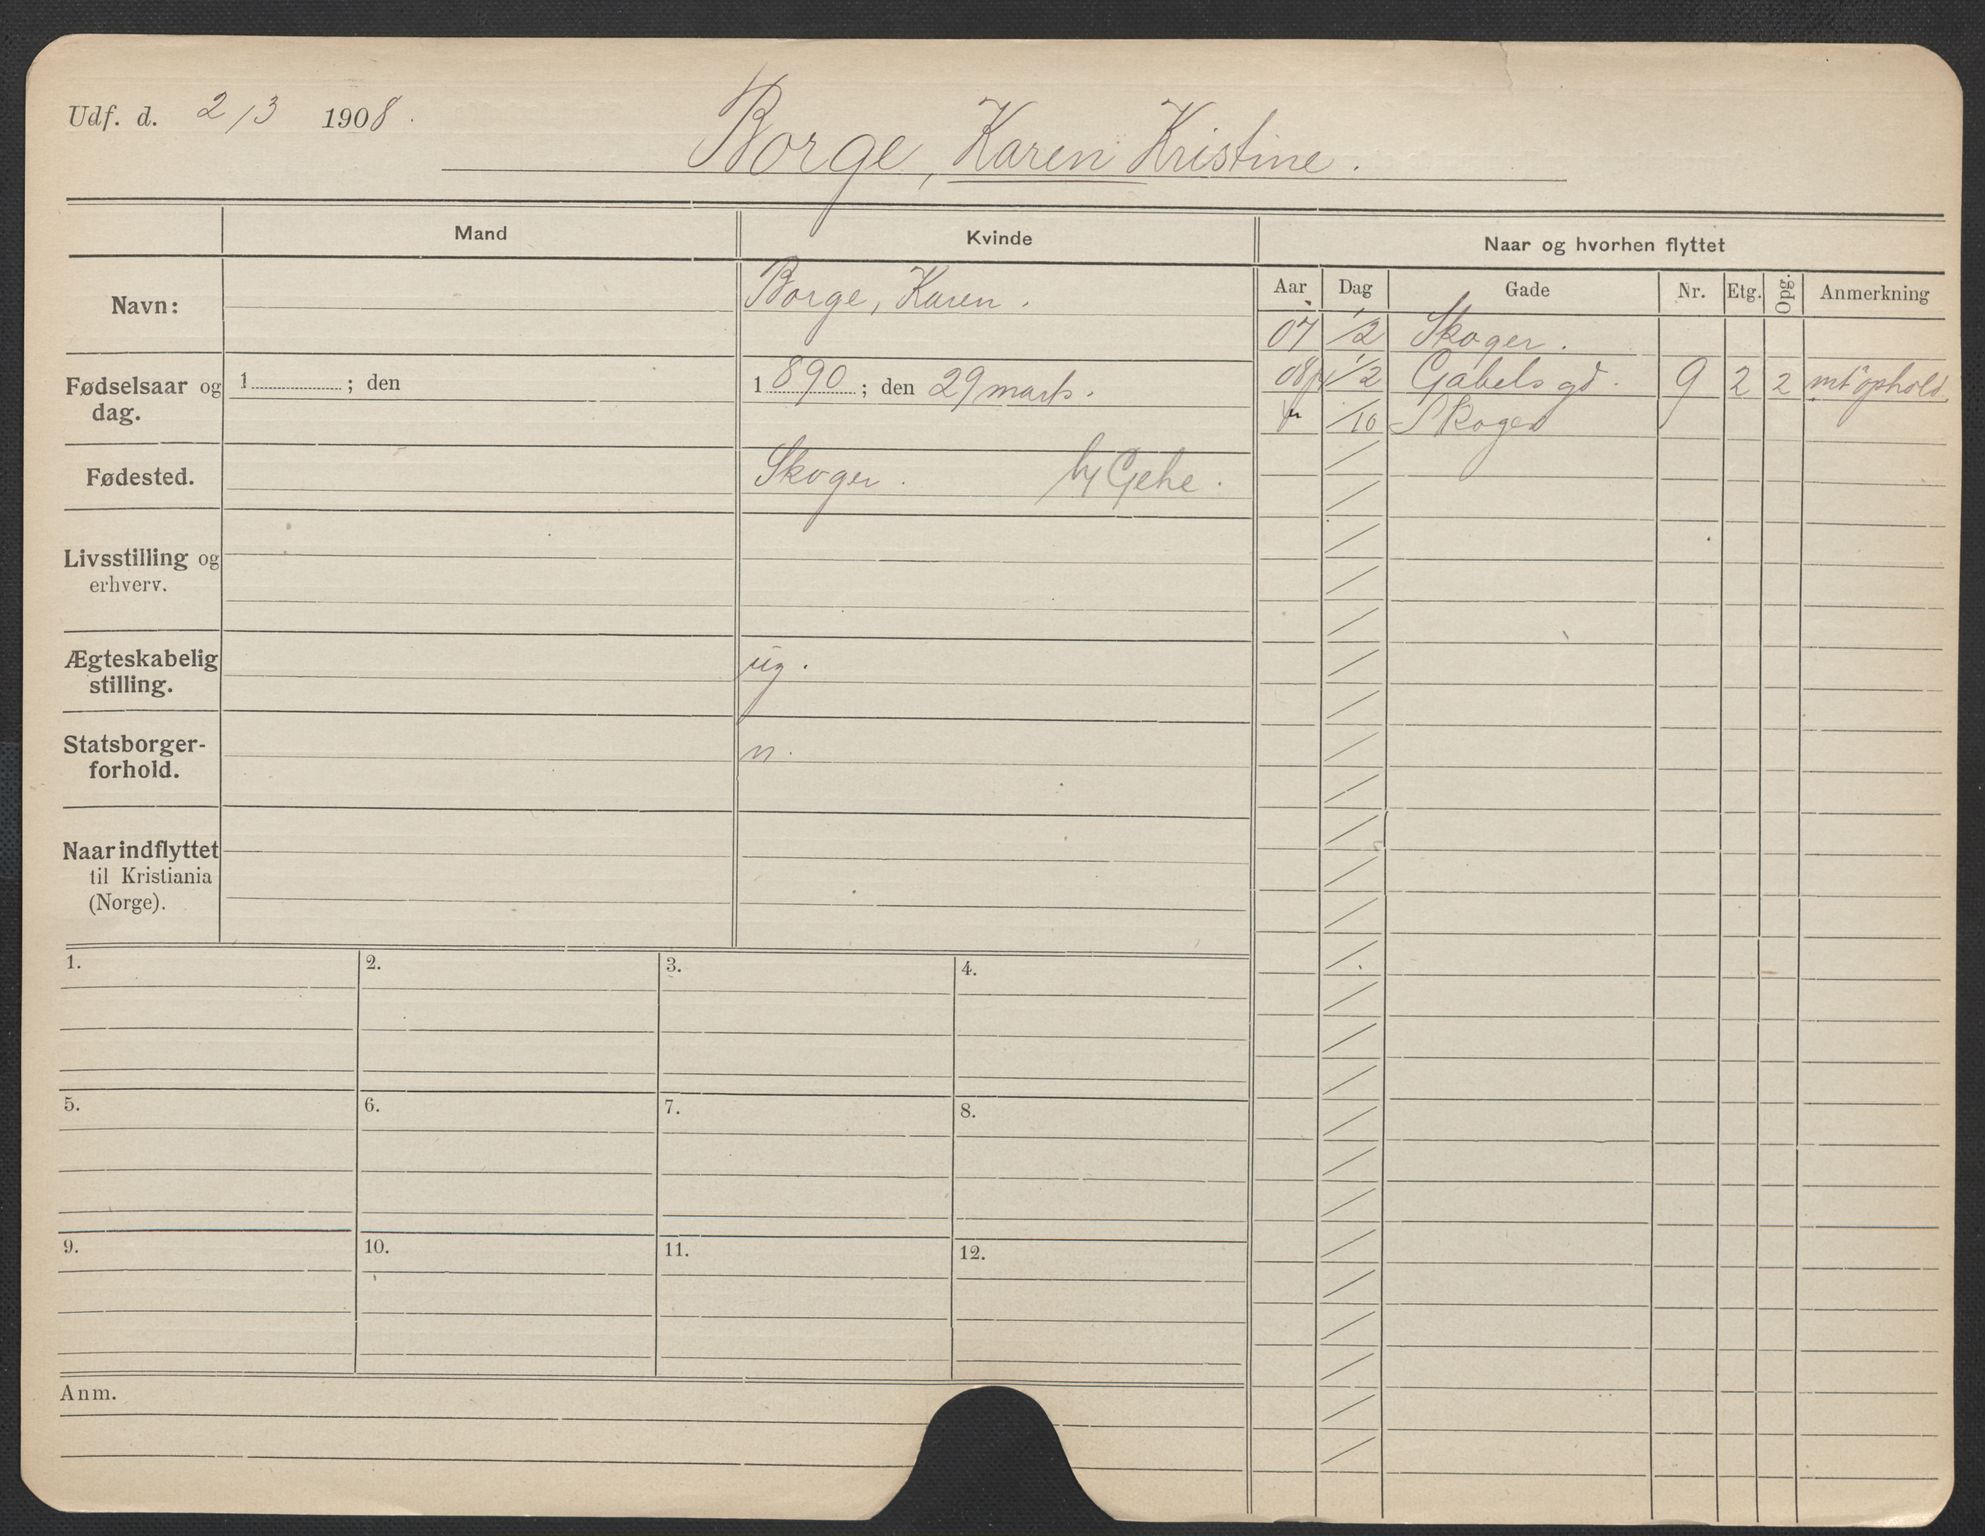 Udf. d. 2/3 1908.
Borge, Karen Kristine.
Mand
Kvinde
Naar og hvorhen flyttet
Aar Dag Gade Nr. Etg. Opg. Anmerkning
Navn:
Borge, Karen.
07 1/2 Skoger.
Fødselsaar og dag.
1 ; den
1890 ; den 29 marts.
08 1/2 Gabels gd. 9 2 2 mt ophold.
/10 Skoger
Fødested.
Skoger. Gehe.
Livsstilling og
erhverv.
Ægteskabelig
stilling.
ug.
Statsborger-
forhold.
n.
Naar indflyttet
til Kristiania
(Norge).
1. 2. 3. 4.
5. 6. 7. 8.
9. 10. 11. 12.
Anm.